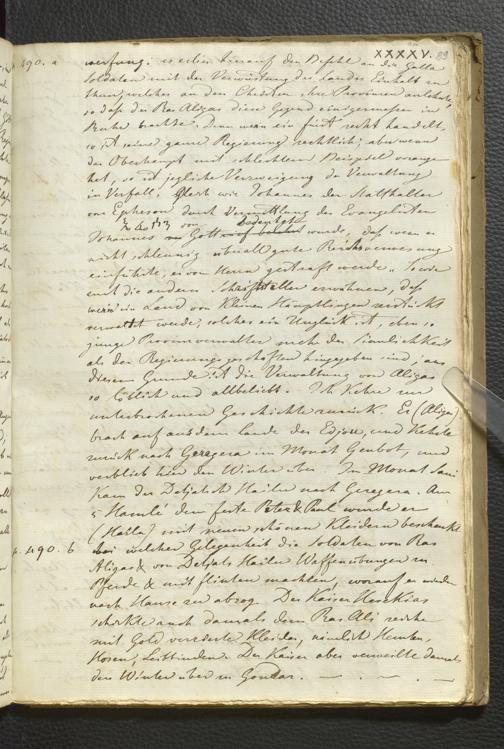 XXXXV. 89
p. 490. a werfung. es erlies hierauf den Befehl an die Galla
Soldaten mit der Verwüstung des Landes Einhalt zu
thun, welches an den Christen ihre Provinzen anlehnte,
so daß der Ras Aligas diese Gegend einigermaßen in
Ruhe brachte. Denn wenn ein Fürst recht handelt,
so ist seine ganze Regierung rechtlich; aber wenn
das Oberhaupt mit schlechtem Beispiel vorange-
het, so ist jegliche Verzweigung der Verwaltung
in Verfall. Gleich wie Johannes der Statthalter
von Epheson durch Vermittlung des Evangelisten
Johannes von Gott bedeutet wurde, daß wenn er
nicht schleunig überall gute Reichsverwesung
einführte, er vom Herrn gestraft werde. Sowie
und die andern Schriftsteller erwähnen, daß
wenn ein Land von kleinen Häuptlingen
verwaltet werde, solches ein Unglück ist, eben so
junge Provinzverwalter mehr der Sinnlichkeit
als den Regierungsgeschäften hingegeben sind; aus
diesem Grunde ist die Verwaltung von Aligas
so löblich und allbeliebt. Ich kehre zur
unterbrochenen Geschichte zurück. Er (Aligas)
brach auf aus dem Lande des Edjou, und kehrte
zurück nach Geregera im Monat Genbot, und
verblieb hier den Winter über. Im Monat Sani
kam der Detjatch Hailu nach Geregera. Am
5 Hamlé dem feste Peter & Paul wurde er
(Hailu) mit neuen schönen Kleidern beschenkt
p. 490. b bei welcher Gelegenheit die Soldaten von Ras
Aligas & von Detjats Hailu Waffenübungen zu
Pferde & mit flinten machten, worauf er wieder
nach Hause zu abzog. Der Kaiser Heskias
schickte auch damals dem Ras Ali reiche
mit Gold verzierte Kleider, nämlich Hemden,
Hosen, Leibbinden. Der Kaiser aber verweilte damals
den Winter über in Gondar.